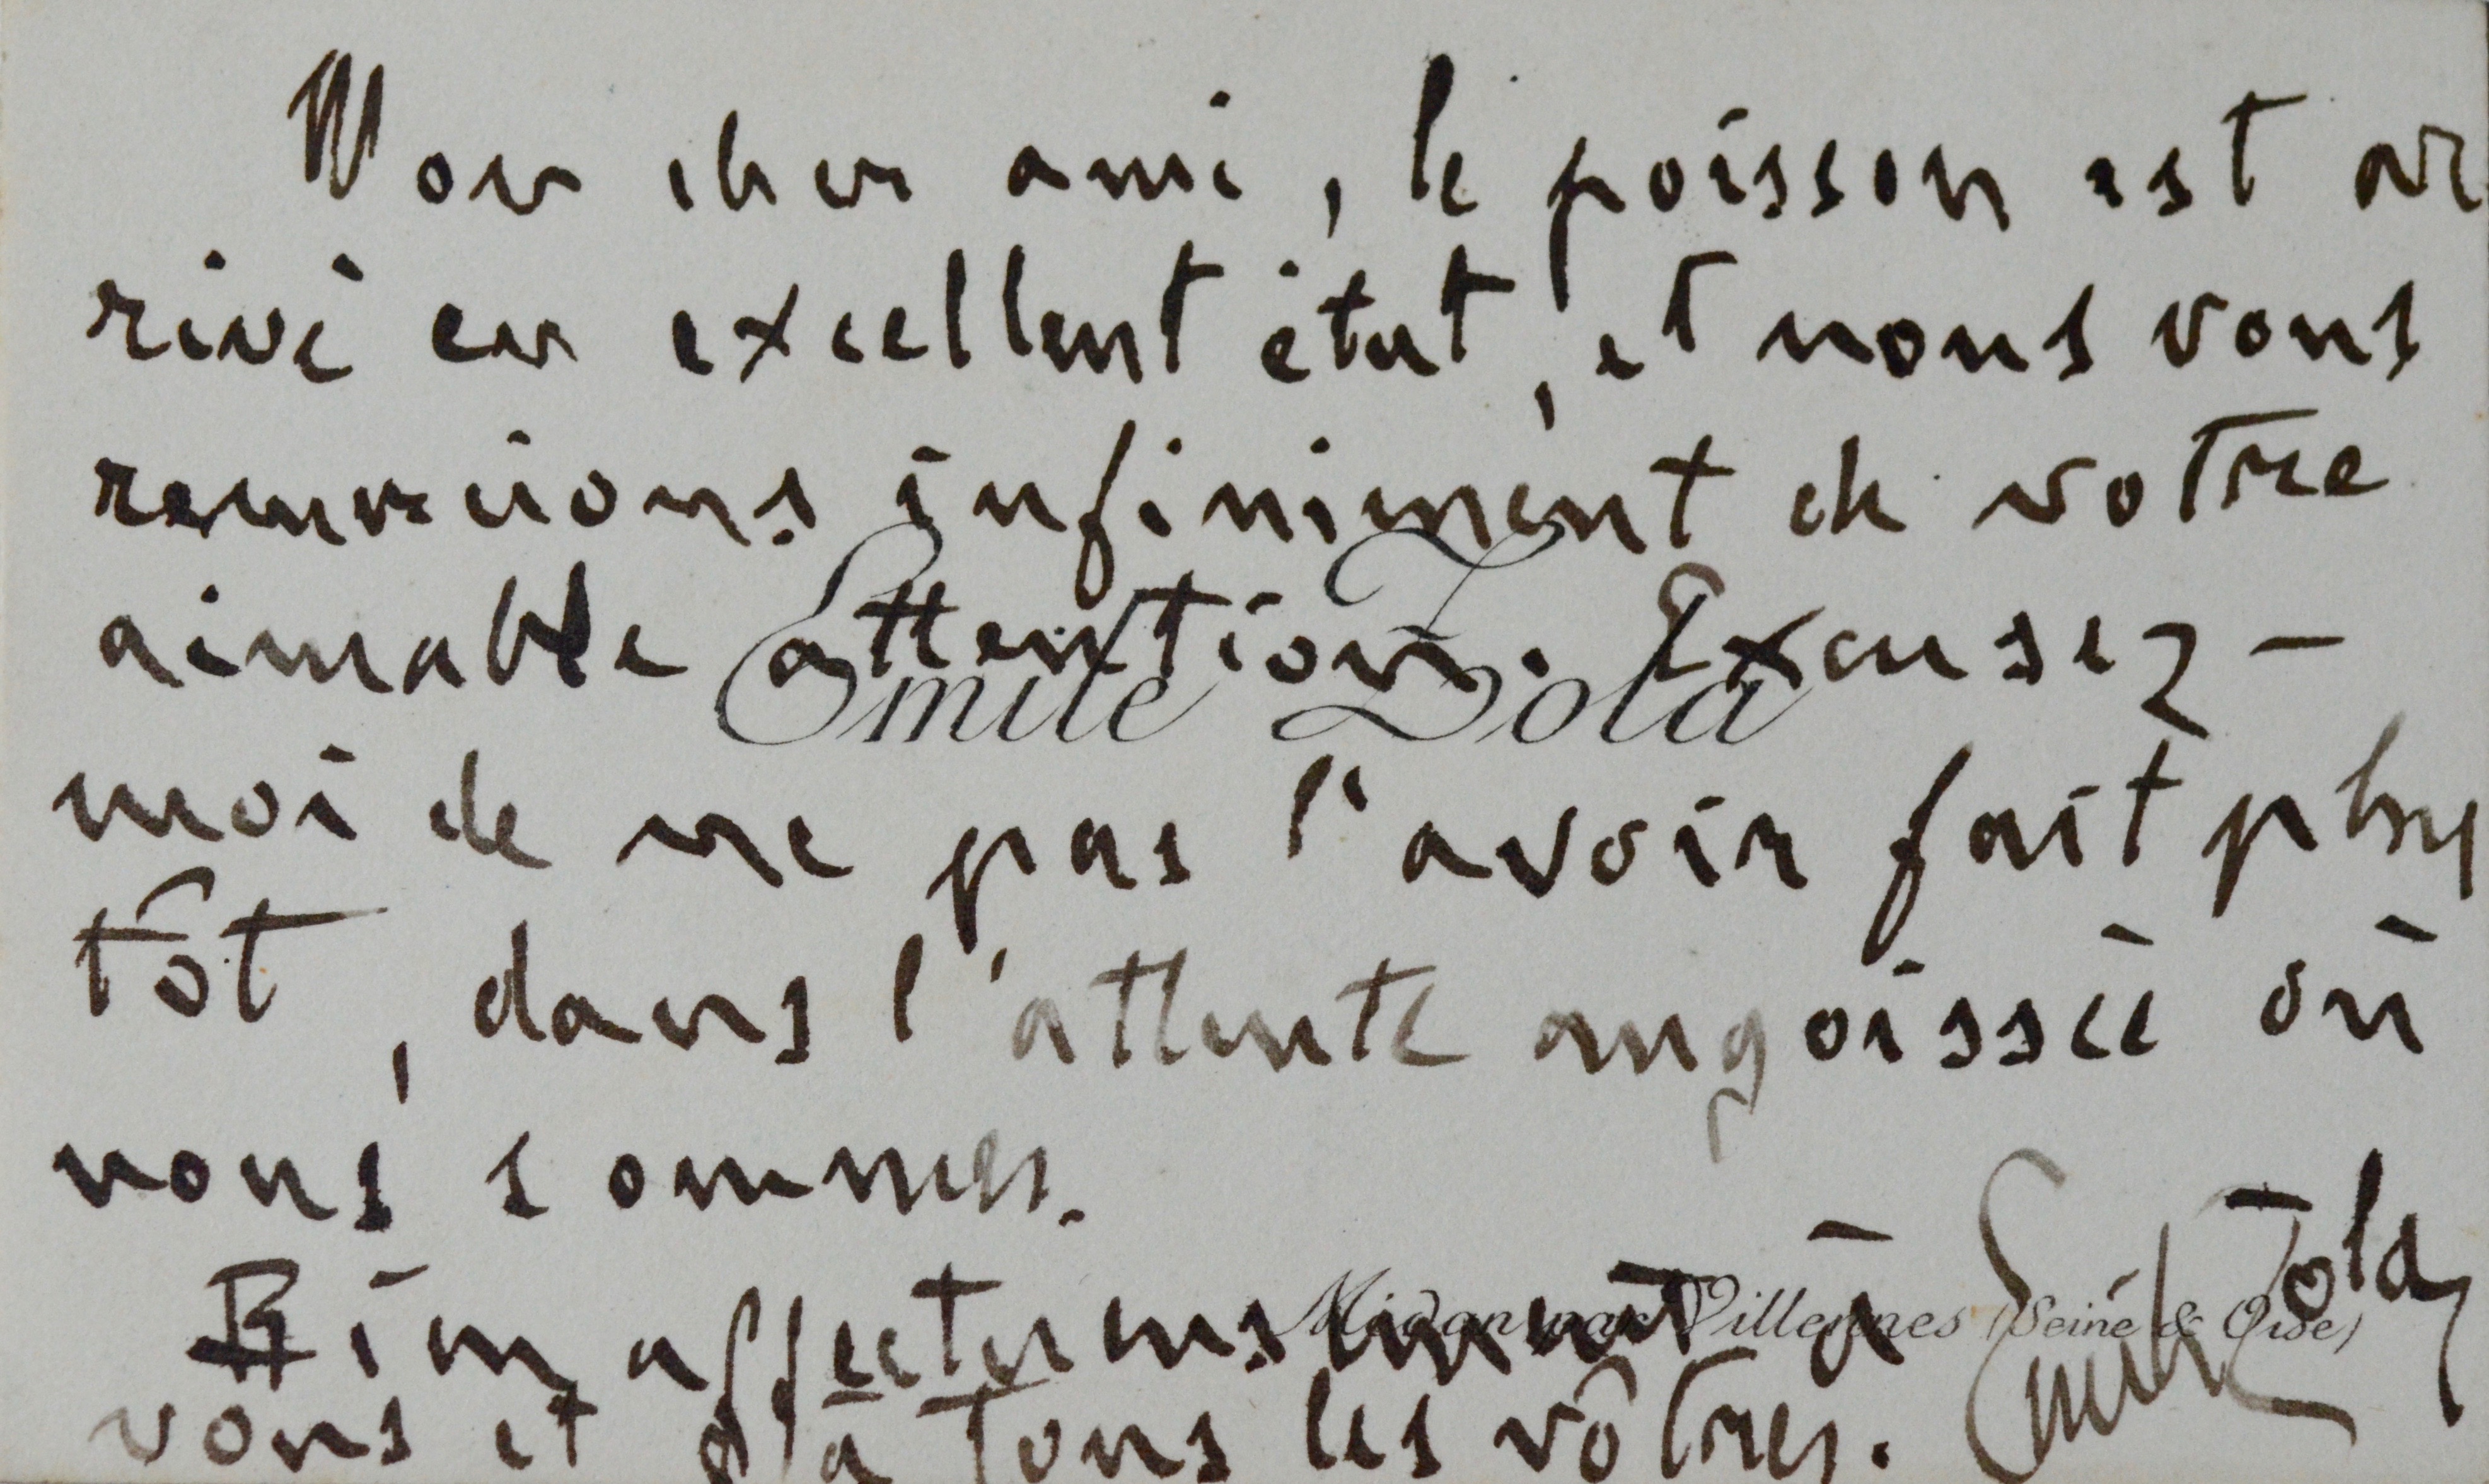 Mon cher ami, le poisson est ar
rivé en excellent état, et nous vous
remercions infiniment de votre
aimable attention. Excusez-
Emile Zola
moi de ne pas l'avoir fait plus
tôt, dans l'attente angoissée où
nous sommes.
Bien affectueusement à
Médan par Villennes (Seine & Oise)
Emile Zola
vous et à tous les vôtres.